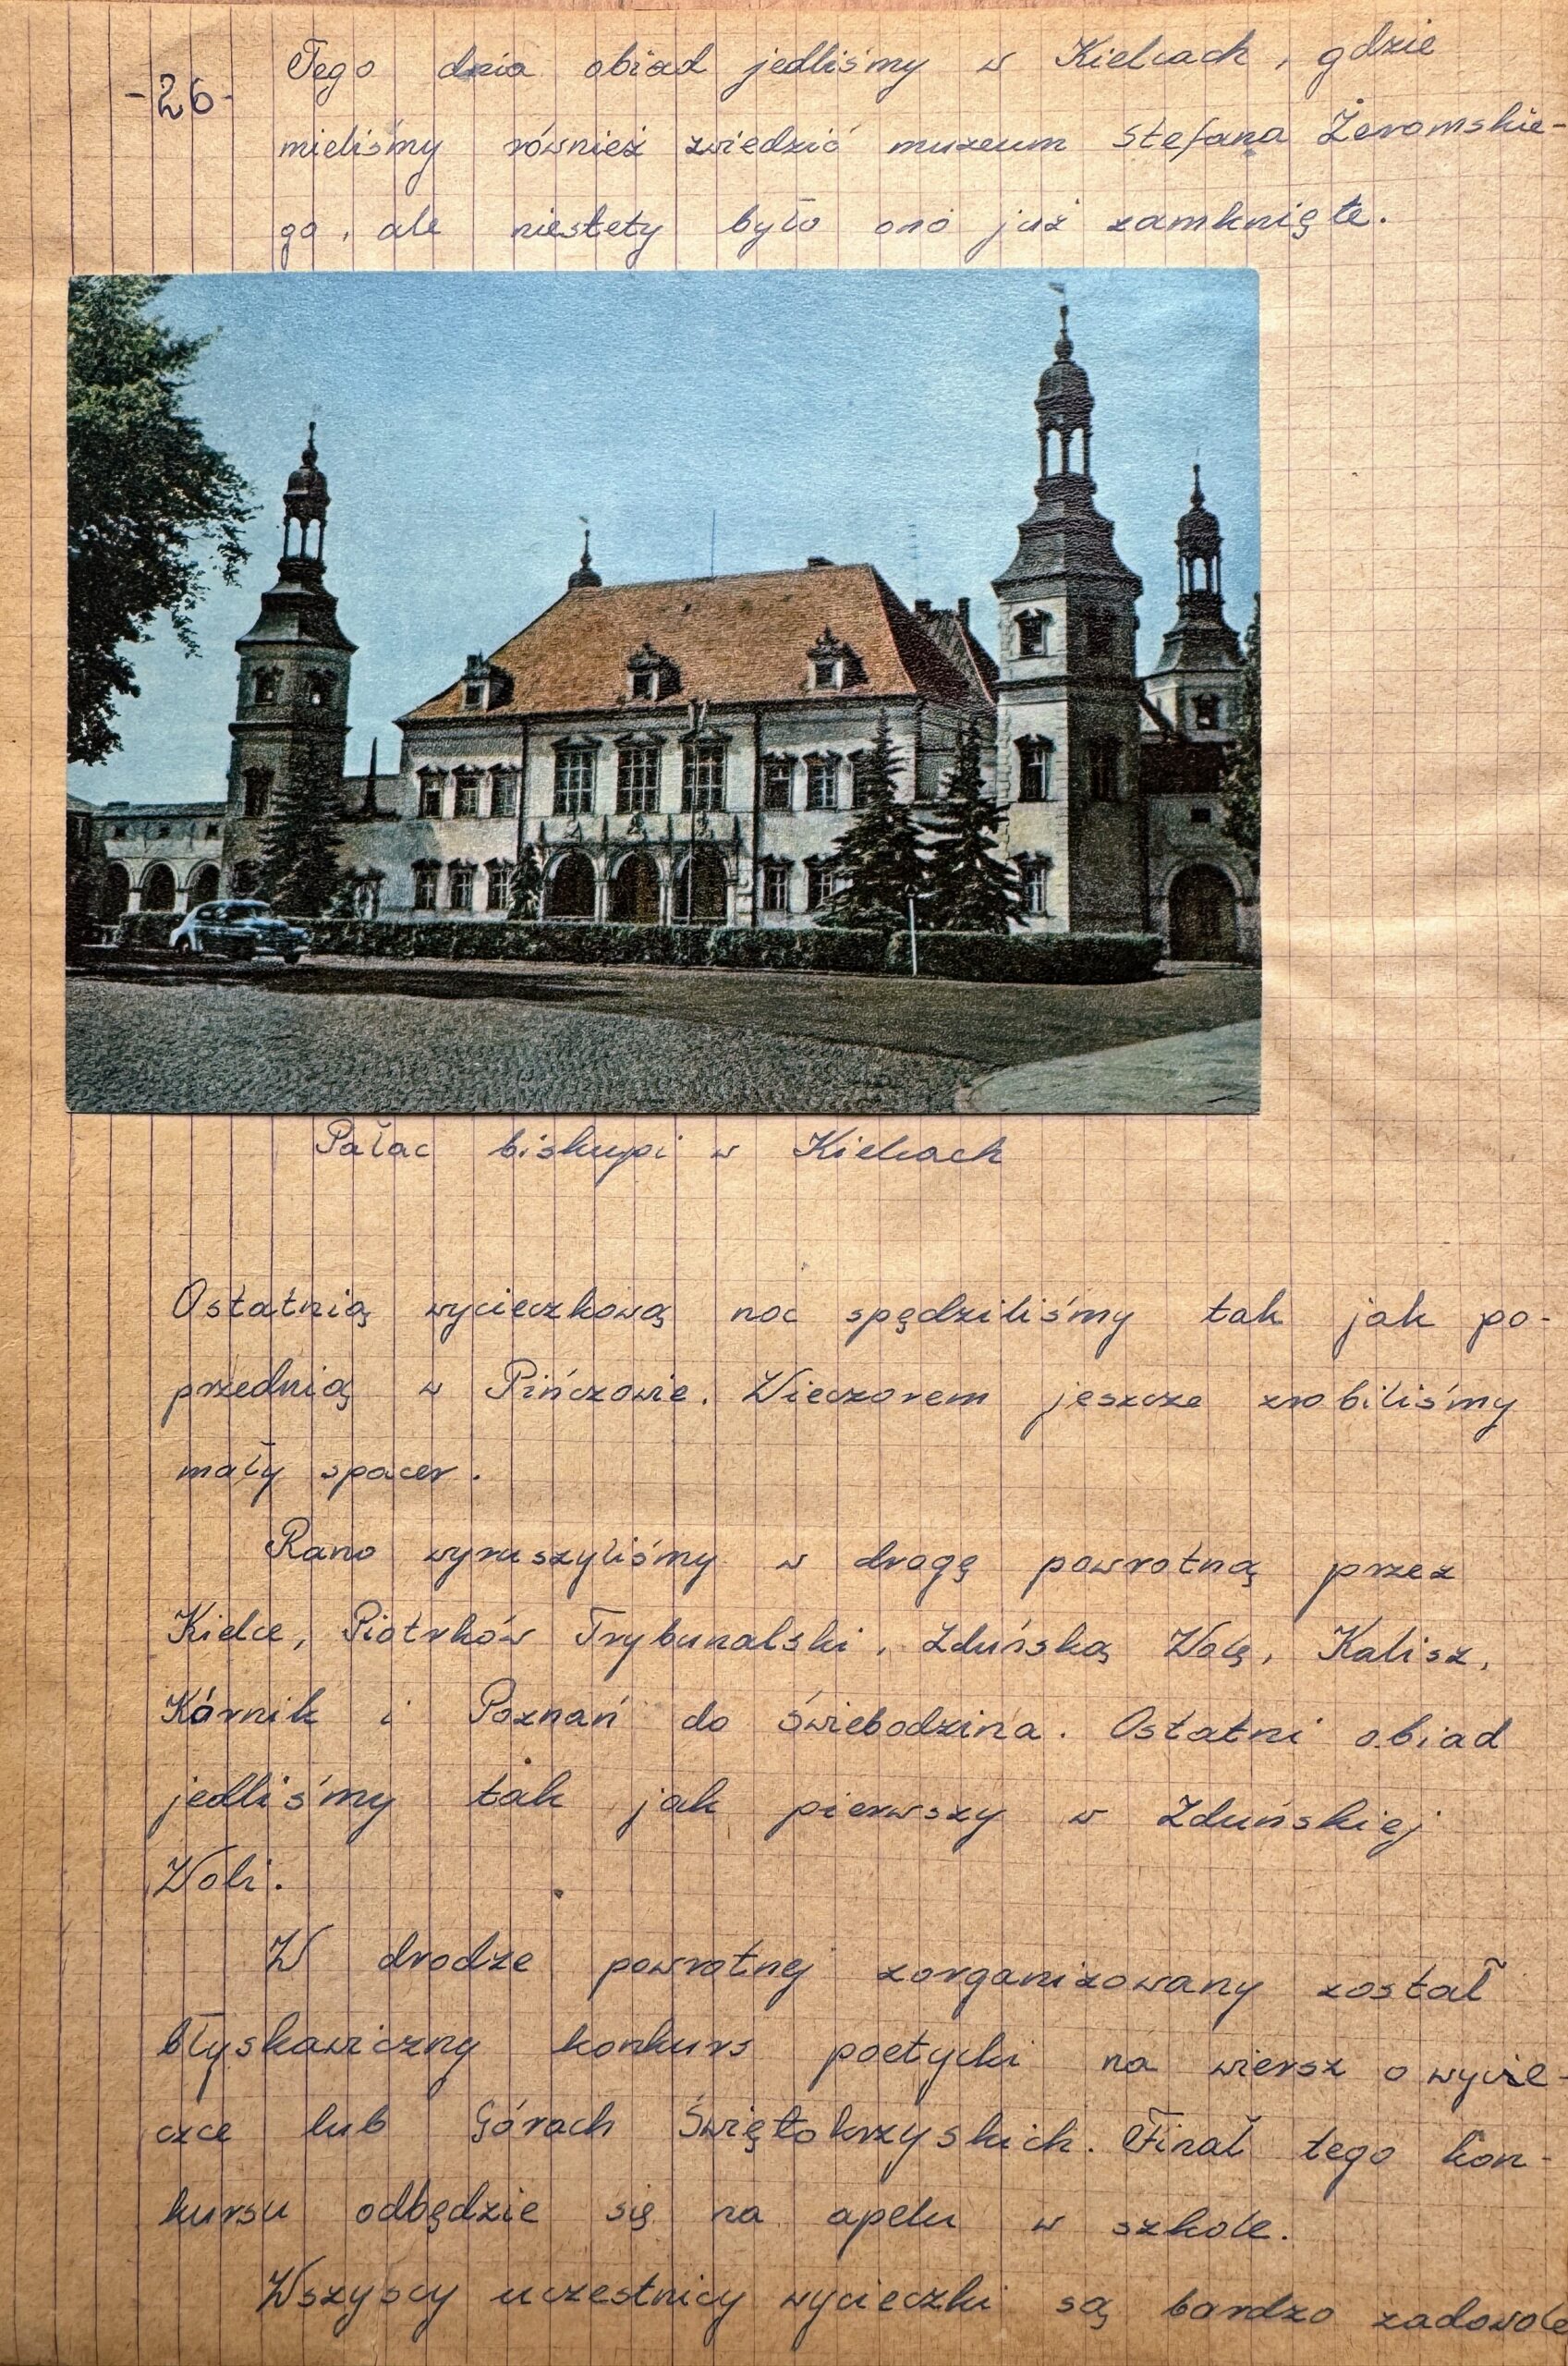 -26-
Tego dnia obiad jedliśmy w Kielcach, gdzie
mieliśmy również zwiedzić muzeum Stefana Żeromskie-
go, ale niestety było ono już zamknięte.
Pałac biskupi w Kielcach
Ostatnią wycieczkową noc spędziliśmy tak jak po-
przednią w Pińczowie. Wieczorem jeszcze zrobiliśmy
mały spacer.
Rano wyruszyliśmy w drogę powrotną przez
Kielce, Piotrków Trybunalski, Zduńską Wolę, Kalisz,
Kórnik i Poznań do Świebodzina. Ostatni obiad
jedliśmy tak jak pierwszy w Zduńskiej
Woli.
W drodze powrotnej zorganizowany został
błyskawiczny konkurs poetycki na wiersz o wycie-
czce lub Górach Świętokrzyskich. Finał tego kon-
kursu odbędzie się na apelu w szkole.
Wszyscy uczestnicy wycieczki są bardzo zadowole